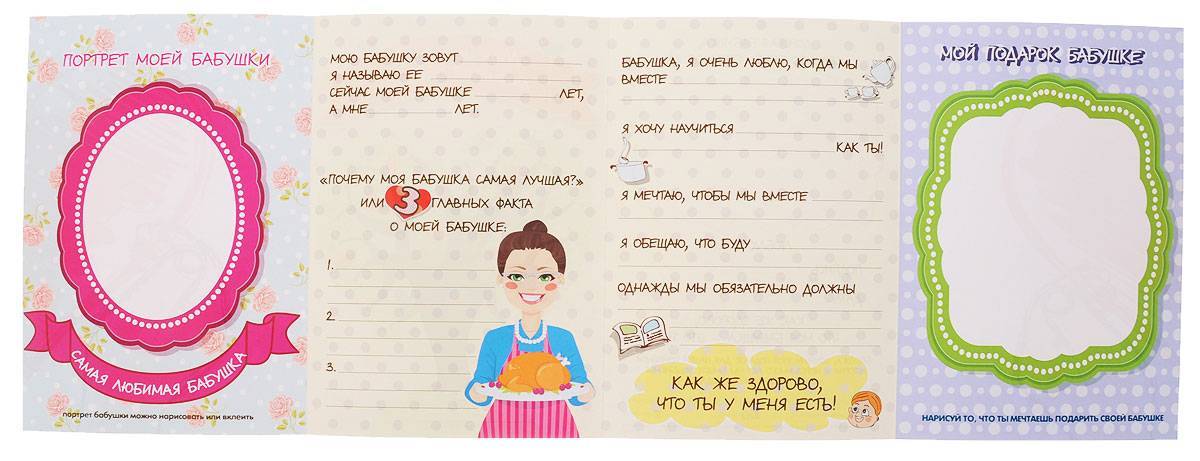 ПОРТРЕТ МОЕЙ БАБУШКИ
САМАЯ ЛЮБИМАЯ БАБУШКА
портрет бабушки можно нарисовать или вклеить
МОЮ БАБУШКУ ЗОВУТ
Я НАЗЫВАЮ ЕЕ
СЕЙЧАС МОЕЙ БАБУШКЕ ЛЕТ,
А МНЕ ЛЕТ.
«ПОЧЕМУ МОЯ БАБУШКА САМАЯ ЛУЧШАЯ?»
ИЛИ 3 ГЛАВНЫХ ФАКТА
О МОЕЙ БАБУШКЕ:
1.
2.
3.
БАБУШКА, Я ОЧЕНЬ ЛЮБЛЮ, КОГДА МЫ
ВМЕСТЕ
Я ХОЧУ НАУЧИТЬСЯ
КАК ТЫ!
Я МЕЧТАЮ, ЧТОБЫ МЫ ВМЕСТЕ
Я ОБЕЩАЮ, ЧТО БУДУ
ОДНАЖДЫ МЫ ОБЯЗАТЕЛЬНО ДОЛЖНЫ
КАК ЖЕ ЗДОРОВО,
ЧТО ТЫ У МЕНЯ ЕСТЬ!
МОЙ ПОДАРОК БАБУШКЕ
НАРИСУЙ ТО, ЧТО ТЫ МЕЧТАЕШЬ ПОДАРИТЬ СВОЕЙ БАБУШКЕ